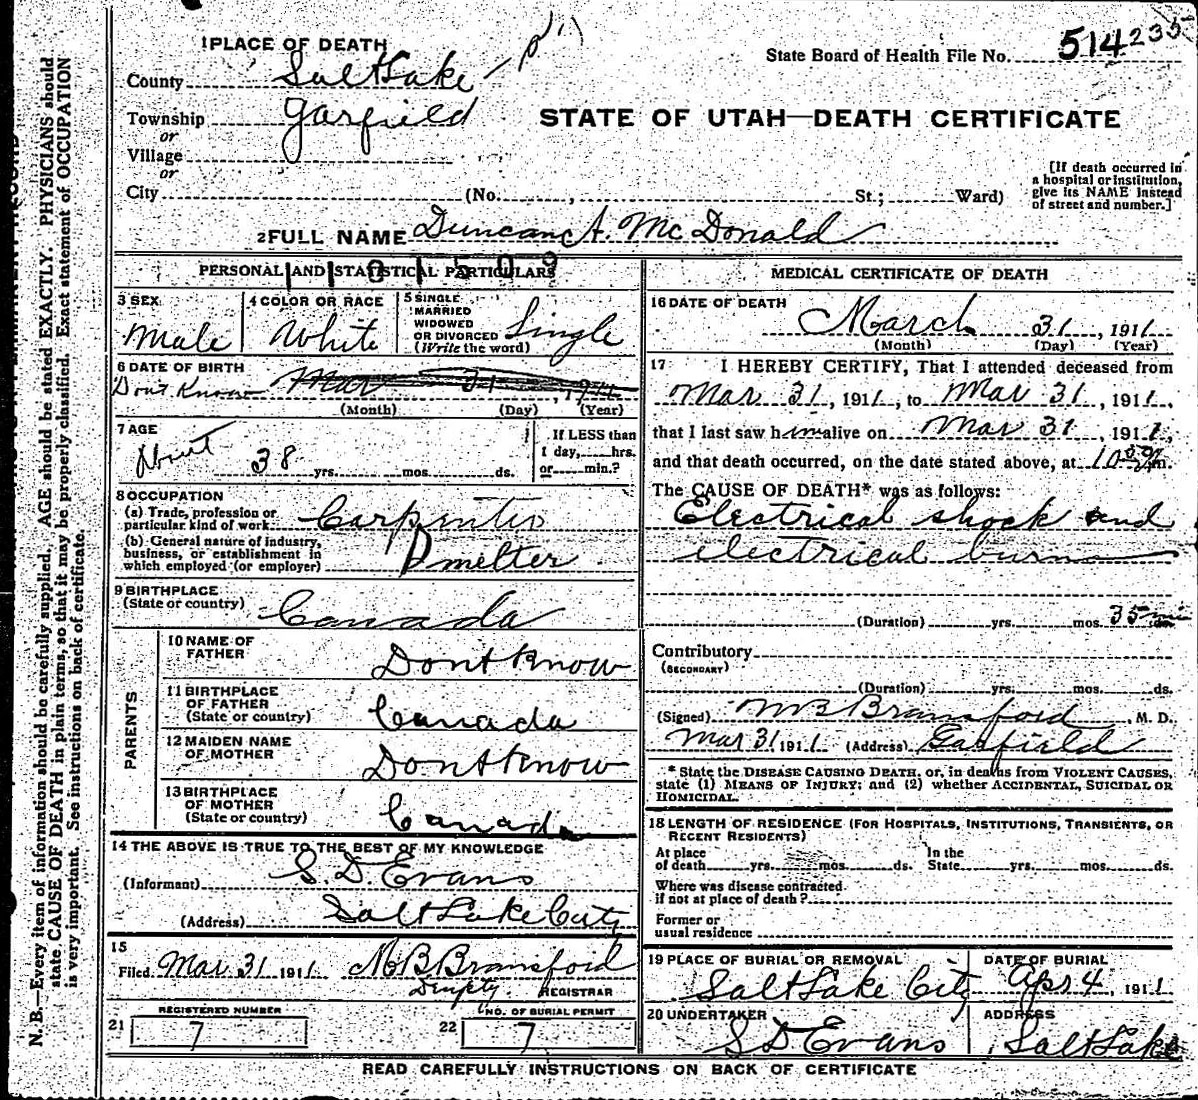 1 PLACE OF DEATH
County Salt Lake
Township Garfield
or
Village
or
City (No. , St.; Ward)
State Board of Health File No. 514 235
STATE OF UTAH—DEATH CERTIFICATE
[If death occurred in
a hospital or institution,
give its NAME instead
of street and number.]
2 FULL NAME Duncan A. McDonald
PERSONAL AND STATISTICAL PARTICULARS
3 SEX Male
4 COLOR OR RACE White
5 SINGLE
MARRIED
WIDOWED
OR DIVORCED
(Write the word) Single
6 DATE OF BIRTH
Dont Know Mar 31, 1911
(Month) (Day) (Year)
7 AGE
About 38 yrs. mos. ds.
If LESS than
1 day, hrs.
or min.?
8 OCCUPATION
(a) Trade, profession or
particular kind of work Carpenter
(b) General nature of industry,
business, or establishment in
which employed (or employer) Smelter
9 BIRTHPLACE
(State or country) Canada
PARENTS
10 NAME OF
FATHER Dont Know
11 BIRTHPLACE
OF FATHER
(State or country) Canada
12 MAIDEN NAME
OF MOTHER Dont Know
13 BIRTHPLACE
OF MOTHER
(State or country) Canada
14 THE ABOVE IS TRUE TO THE BEST OF MY KNOWLEDGE
(Informant) S. D. Evans
(Address) Salt Lake City
15
Filed Mar 31 1911 M B Bransford
Deputy REGISTRAR
21 REGISTERED NUMBER
7
22 NO. OF BURIAL PERMIT
7
MEDICAL CERTIFICATE OF DEATH
16 DATE OF DEATH
March 31, 1911
(Month) (Day) (Year)
17 I HEREBY CERTIFY, That I attended deceased from
Mar 31, 1911, to Mar 31, 1911,
that I last saw him alive on Mar 31, 1911,
and that death occurred, on the date stated above, at m.
The CAUSE OF DEATH* was as follows:
Electrical shock and
electrical burns
(Duration) yrs. mos. 35 min
Contributory
(SECONDARY)
(Duration) yrs. mos. ds.
(Signed) M B Bransford, M. D.
Mar 31 1911 (Address) Garfield
* State the DISEASE CAUSING DEATH, or, in deaths from VIOLENT CAUSES,
state (1) MEANS OF INJURY; and (2) whether ACCIDENTAL, SUICIDAL OR
HOMICIDAL.
18 LENGTH OF RESIDENCE (FOR HOSPITALS, INSTITUTIONS, TRANSIENTS, OR
RECENT RESIDENTS)
At place
of death yrs. mos. ds.
In the
State yrs. mos. ds.
Where was disease contracted
if not at place of death?
Former or
usual residence
19 PLACE OF BURIAL OR REMOVAL
Salt Lake City
DATE OF BURIAL
Apr 4, 1911
20 UNDERTAKER
S D Evans
ADDRESS
Salt Lake
READ CAREFULLY INSTRUCTIONS ON BACK OF CERTIFICATE
N. B.—Every item of information should be carefully supplied. AGE should be stated EXACTLY. PHYSICIANS should
state CAUSE OF DEATH in plain terms, so that it may be properly classified. Exact statement of OCCUPATION
is very important. See instructions on back of certificate.